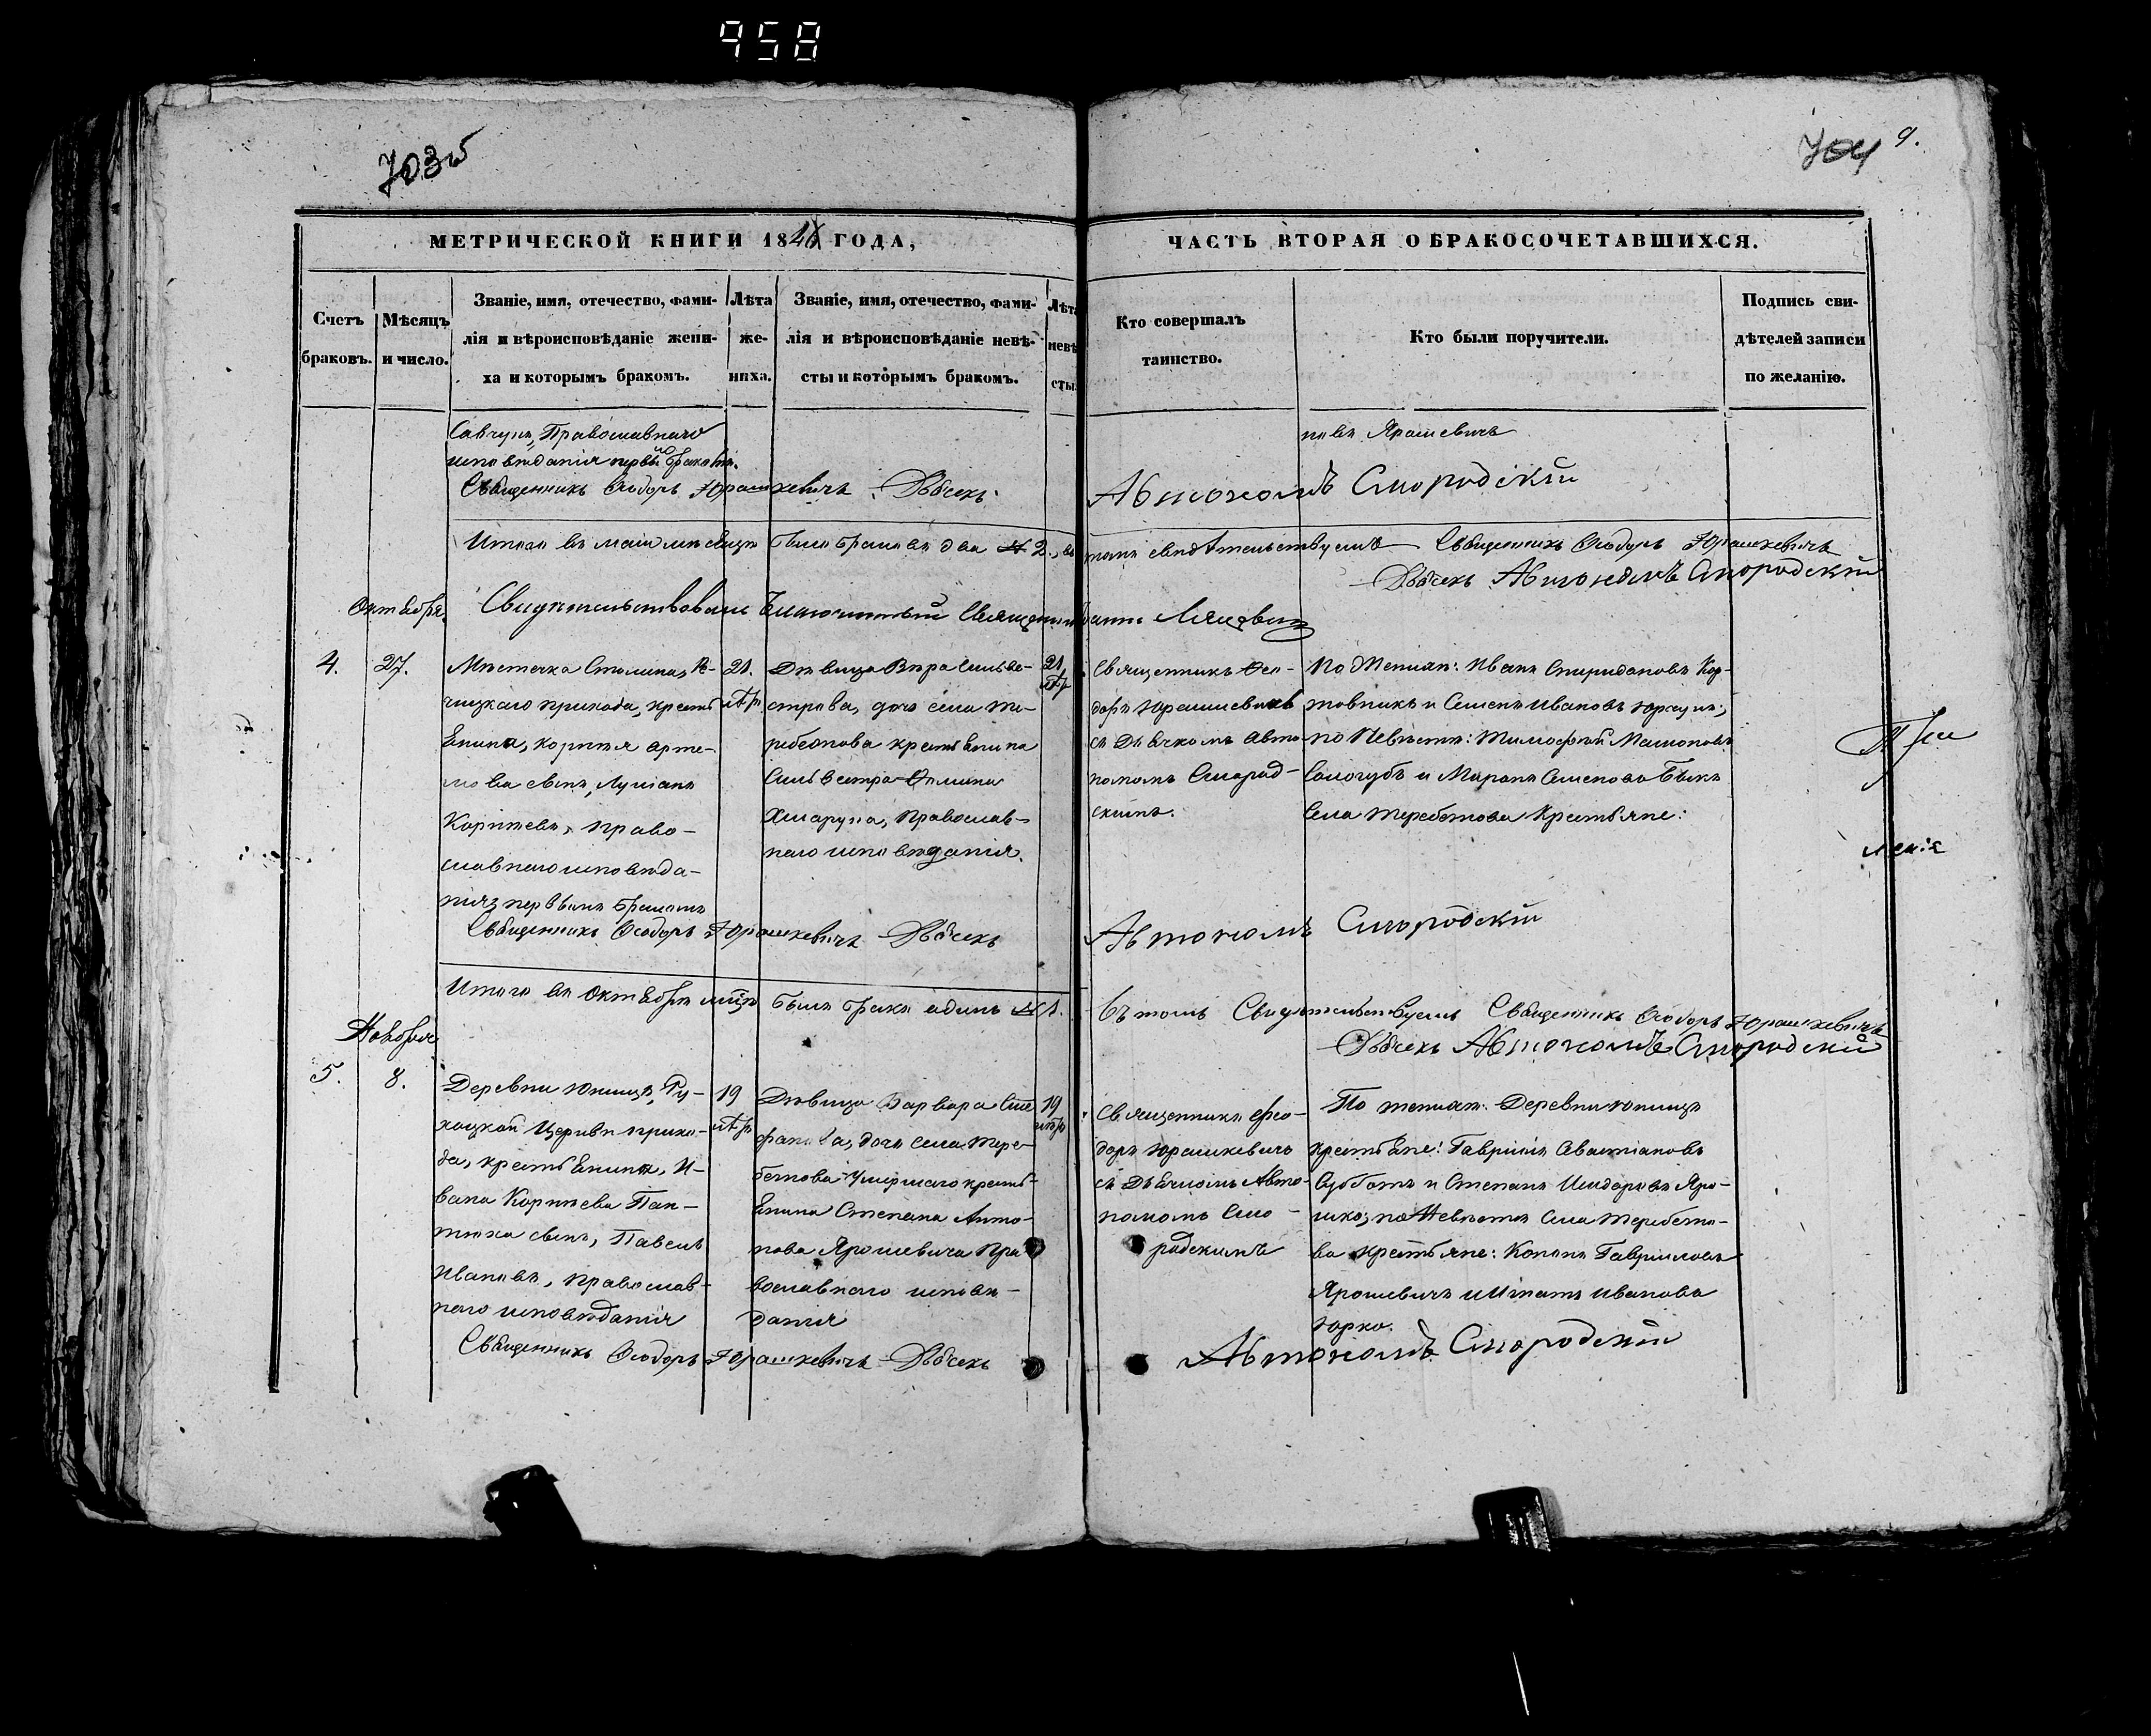 958
703 об
704 9.
МЕТРИЧЕСКОЙ КНИГИ 184 ГОДА,
ЧАСТЬ ВТОРАЯ О БРАКОСОЧЕТАВШИХСЯ.
Счетъ
браковъ.
Мѣсяцъ
и число.
Званіе, имя, отечество, фами-
лія и вѣроисповѣданіе жени-
ха и которымъ бракомъ.
Лѣта
же-
ниха.
Званіе, имя, отечество, фами-
лія и вѣроисповѣданіе невѣ-
сты и которымъ бракомъ.
Лѣта
невѣ
сты
Кто совершалъ
таинство.
Кто были поручители.
Подпись сви-
дѣтелей записи
по желанію.
Православнаго
исповѣданія
новъ Ярошевичъ
Священникъ Ѳеодоръ Юрашкевичъ Дьячекъ Автономъ Смородскій
Итого въ маіи мѣсяцѣ было браковъ два № 2., въ томъ свидѣтельствуемъ Священникъ Ѳеодоръ Юрашкевичъ
Дьячекъ Автономъ Смородскій
Октября.
Свидѣтельствовалъ Благочинный Священникъ
4.
27.
Мѣстечка Столина,
прихода, кресть
янина, Корнѣя Арте-
мова сынъ, Лукіанъ
Корнѣевъ, право-
славнаго исповѣда-
нія первымъ бракомъ
21.
лѣтъ
Дѣвица Вѣра Сильве-
строва, дочь села Те-
ребежова крестьянина
Сильвестра
Хмарука, православ-
наго исповѣданія.
21
лѣтъ
Священникъ Ѳео-
доръ Юрашкевичъ
съ Дьячкомъ Авто-
номомъ Смород-
скимъ.
По Женихѣ: Иванъ Спиридоновъ Кор-
товникъ и Семенъ Ивановъ
по Невѣстѣ: Тимофѣй
и Миронъ Семеновъ Быкъ
Села Теребежова Крестьяне:
Священникъ Ѳеодоръ Юрашкевичъ Дьячекъ Автономъ Смородскій
Итого въ Октябрѣ мѣсяцѣ былъ бракъ одинъ № 1. въ томъ Свидѣтельствуемъ Священникъ Ѳеодоръ Юрашкевичъ
Дьячекъ Автономъ Смородскій
Ноября
5.
8.
Деревни Юнищъ, Ру-
хоцкой Церкви прихо-
да, крестьянина, И-
вана Корнѣева Пан-
тюха сынъ, Павелъ
Ивановъ, православ-
наго исповѣданія
19
лѣтъ
Дѣвица Варвара Сте
фанова, дочь села Тере-
бежова Умершаго кресть-
янина Степана Анто-
нова Ярошевича Пра
вославнаго исповѣ-
данія
19
лѣтъ
Священникъ Ѳео-
доръ Юрашкевичъ
съ Дьячкомъ Авто-
номомъ Смо-
родскимъ
По женихѣ: Деревни Юнищъ
крестьяне: Гавриилъ
Субботъ и Степанъ Исидоровъ Яро-
шко; по Невѣстѣ Села Теребежо-
ва крестьяне: Кононъ Гавриловъ
Ярошевичъ и Игнатъ Ивановъ
Юрко.
Священникъ Ѳеодоръ Юрашкевичъ Дьячекъ Автономъ Смородскій